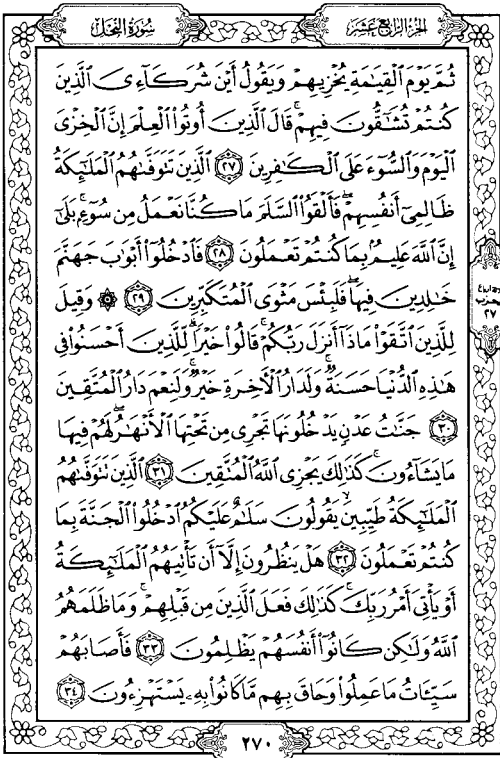 سُورَةُ النَّحْلِ
الجُزْءُ الرَّابِعَ عَشَرَ
ثُمَّ يَوْمَ ٱلْقِيَٰمَةِ يُخْزِيهِمْ وَيَقُولُ أَيْنَ شُرَكَآءِىَ ٱلَّذِينَ
كُنتُمْ تُشَٰٓقُّونَ فِيهِمْ ۚ قَالَ ٱلَّذِينَ أُوتُوا۟ ٱلْعِلْمَ إِنَّ ٱلْخِزْىَ
ٱلْيَوْمَ وَٱلسُّوٓءَ عَلَى ٱلْكَٰفِرِينَ ٢٧ ٱلَّذِينَ تَتَوَفَّىٰهُمُ ٱلْمَلَٰٓئِكَةُ
ظَالِمِىٓ أَنفُسِهِمْ ۖ فَأَلْقَوُا۟ ٱلسَّلَمَ مَا كُنَّا نَعْمَلُ مِن سُوٓءٍۭ ۚ بَلَىٰٓ
إِنَّ ٱللَّهَ عَلِيمٌۢ بِمَا كُنتُمْ تَعْمَلُونَ ٢٨ فَٱدْخُلُوٓا۟ أَبْوَٰبَ جَهَنَّمَ
خَٰلِدِينَ فِيهَا ۖ فَلَبِئْسَ مَثْوَى ٱلْمُتَكَبِّرِينَ ٢٩ ۞ وَقِيلَ
لِلَّذِينَ ٱتَّقَوْا۟ مَاذَآ أَنزَلَ رَبُّكُمْ ۚ قَالُوا۟ خَيْرًا ۗ لِّلَّذِينَ أَحْسَنُوا۟ فِى
هَٰذِهِ ٱلدُّنْيَا حَسَنَةٌ ۚ وَلَدَارُ ٱلْءَاخِرَةِ خَيْرٌ ۚ وَلَنِعْمَ دَارُ ٱلْمُتَّقِينَ
٣٠ جَنَّٰتُ عَدْنٍ يَدْخُلُونَهَا تَجْرِى مِن تَحْتِهَا ٱلْأَنْهَٰرُ ۖ لَهُمْ فِيهَا
مَا يَشَآءُونَ ۚ كَذَٰلِكَ يَجْزِى ٱللَّهُ ٱلْمُتَّقِينَ ٣١ ٱلَّذِينَ تَتَوَفَّىٰهُمُ
ٱلْمَلَٰٓئِكَةُ طَيِّبِينَ ۙ يَقُولُونَ سَلَٰمٌ عَلَيْكُمُ ٱدْخُلُوا۟ ٱلْجَنَّةَ بِمَا
كُنتُمْ تَعْمَلُونَ ٣٢ هَلْ يَنظُرُونَ إِلَّآ أَن تَأْتِيَهُمُ ٱلْمَلَٰٓئِكَةُ
أَوْ يَأْتِىَ أَمْرُ رَبِّكَ ۚ كَذَٰلِكَ فَعَلَ ٱلَّذِينَ مِن قَبْلِهِمْ ۚ وَمَا ظَلَمَهُمُ
ٱللَّهُ وَلَٰكِن كَانُوٓا۟ أَنفُسَهُمْ يَظْلِمُونَ ٣٣ فَأَصَابَهُمْ
سَيِّـَٔاتُ مَا عَمِلُوا۟ وَحَاقَ بِهِم مَّا كَانُوا۟ بِهِۦ يَسْتَهْزِءُونَ ٣٤
الحزب
٢٧
٢٧٠